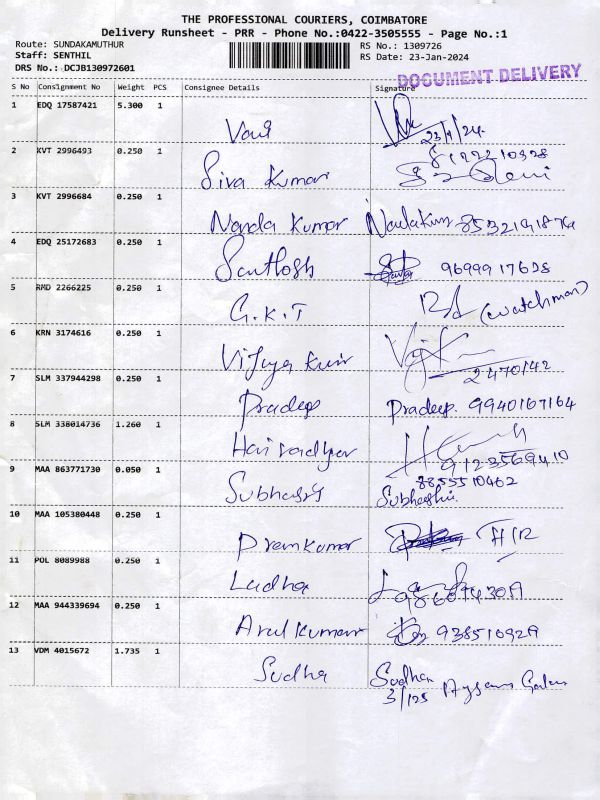 THE PROFESSIONAL COURIERS, COIMBATORE
Delivery Runsheet - PRR - Phone No.:0422-3505555 - Page No.:1
Route: SUNDAKAMUTHUR RS No.: 1309726
Staff: SENTHIL RS Date: 23-Jan-2024
DRS No.: DCJB130972601
DOCUMENT DELIVERY
S No Consignment No Weight PCS Consignee Details Signature
1 EDQ 17587421 5.300 1
23/1/24
2 KVT 2996493 0.250 1
Siva Kumar
3 KVT 2996684 0.250 1
Nanda Kumar
4 EDQ 25172683 0.250 1
Santhosh 9699917628
5 RMD 2266225 0.250 1
G.K.T (watchman)
6 KRN 3174616 0.250 1
Vijaya
7 SLM 337944298 0.250 1
Pradeep Pradeep. 9940167164
8 SLM 338014736 1.260 1
9123569410
9 MAA 863771730 0.050 1
8855510462
10 MAA 105380448 0.250 1
Premkumar
11 POL 8089988 0.250 1
Ladha
12 MAA 944339694 0.250 1
Arul Kumar
13 VDM 4015672 1.735 1
Sudha Sudha
3/125